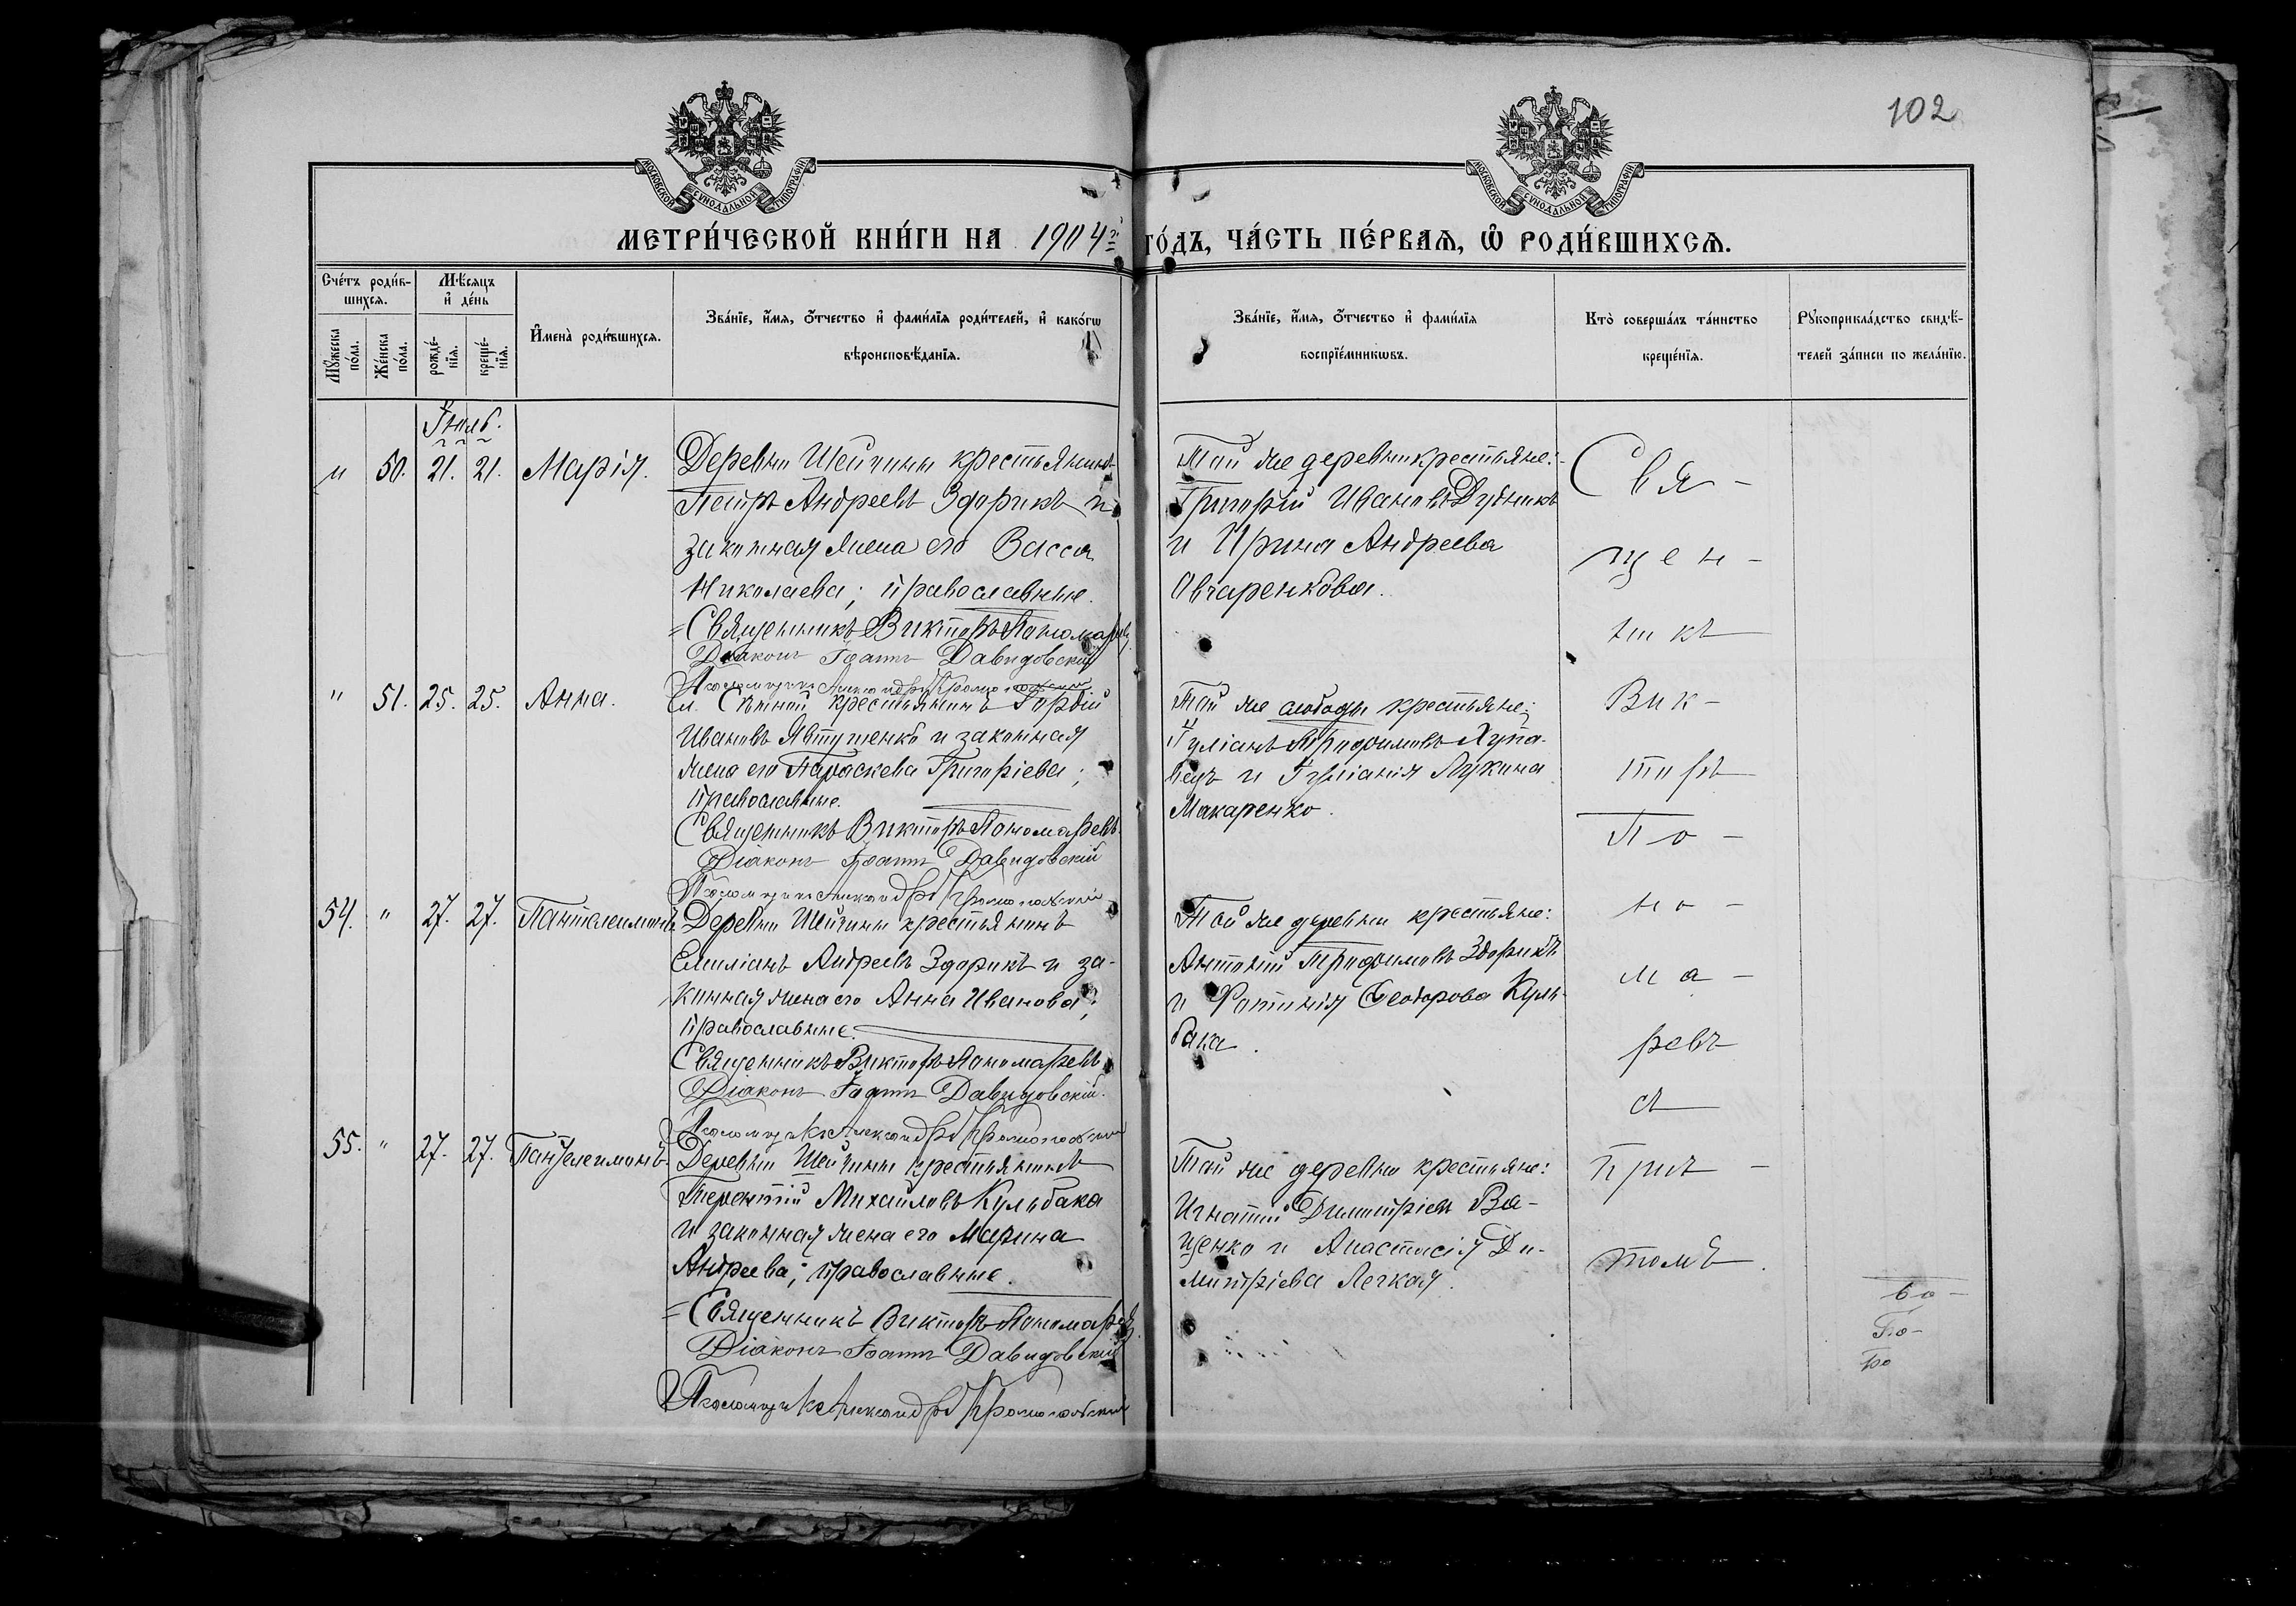 102
МОСКОВСКОЙ СѴНОДАЛЬНОЙ ТИПОГРАФІИ
МОСКОВСКОЙ СѴНОДАЛЬНОЙ ТИПОГРАФІИ
МЕТРИ́ЧЕСКОЙ КНИ́ГИ НА 1904й ГО́ДЪ, ЧА́СТЬ ПЕ́РВАѦ, Ѽ РОДИ́ВШИХСѦ.
Сче́тъ роди́в-
шихсѧ.
Мꙋ́жеска
по́ла.
Же́нска
по́ла.
Мѣ́сѧцъ
и҆ де́нь
рожде́-
нїѧ.
креще́-
нїѧ.
И҆мена̀ роди́вшихсѧ.
Зва́нїе, и҆́мѧ, ѻ҆́тчество и҆ фами́лїѧ роди́телей, и҆ како́гѡ
вѣроисповѣ́данїѧ.
Зва́нїе, и҆́мѧ, ѻ҆́тчество и҆ фами́лїѧ
воспрїе́мникѡвъ.
Кто̀ соверша́лъ та́инство
креще́нїѧ.
Рꙋкоприкла́дство свидѣ́-
телей за́писи по жела́нїю.
Іюль.
" 50. 21. 21. Марія.
Деревни Шейчины крестьянинъ
Петръ Андреевъ Здорикъ и
законная жена его Васса
Николаева; православные.
Священникъ Викторъ Пономаревъ
Діаконъ Іоаннъ Давидовскій
Псаломщикъ Александръ
Той же деревни крестьяне:
Григорій Ивановъ Дудникъ
и Ирина Андреева
Овчаренкова.
" 51. 25. 25. Анна.
сл. крестьянинъ Гордій
Ивановъ Явтушенко и законная
жена его Параскева Григоріева;
православные.
Священникъ Викторъ Пономаревъ
Діаконъ Іоаннъ Давидовскій
Псаломщикъ Александръ
Той же слободы крестьяне:
Іуліанъ Трифимовъ Хупа-
вецъ и Іуліанія Лукина
Макаренко.
54. " 27. 27. Пантелеимонъ
Деревни Шейчины крестьянинъ
Емиліанъ Андреевъ Здорикъ и за-
конная жена его Анна Иванова;
православные.
Священникъ Викторъ Пономаревъ
Діаконъ Іоаннъ Давидовскій.
Псаломщикъ Александръ
Той же деревни крестьяне:
Антоній Трифимовъ Здорикъ
и Фотинія Ѳеодорова Куль-
бака.
55. " 27. 27. Пантелеимонъ
Деревни Шейчины крестьянинъ
Терентій Михаиловъ Кульбака
и законная жена его Марина
Андреева; православные.
Священникъ Викторъ Пономаревъ
Діаконъ Іоаннъ Давидовскій
Псаломщикъ Александръ
Той же деревни крестьяне:
Игнатій Димитріевъ Ва-
щенко и Анастасія Ди-
митріева Легкая.
Свя-
щен-
никъ
Вик-
торъ
По-
но-
ма-
ревъ
съ
прич-
томъ.